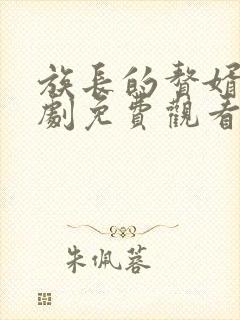 族長的贅婿
劇免費觀看
朱佩蓉